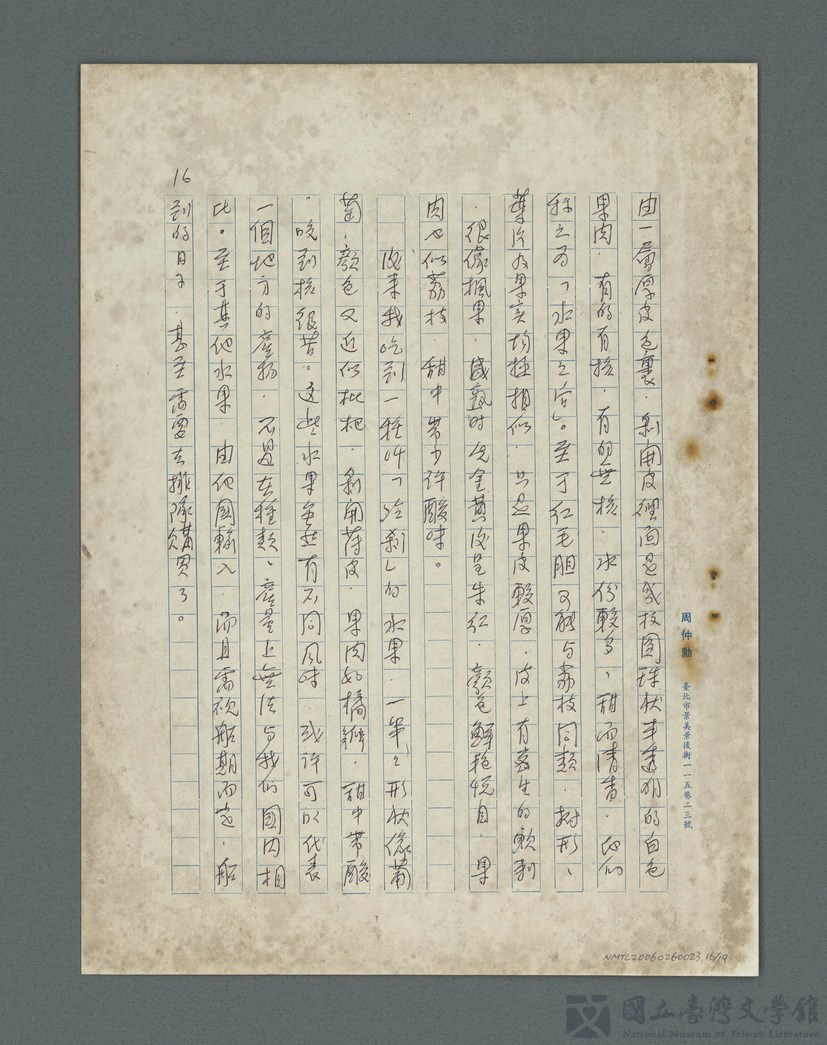 周仲勳 臺北市景美景後街一一五巷二三號
由一層厚皮包裹．剝開皮裡面是幾枚圓球狀半透明的白色
果肉．有的有核．有的無核．水份較多、甜而清香．他們
称之为「水果之后」。至于红毛胆可能与荔枝同類．树形、
葉片及果实均極相似．只是果皮較厚．皮上有寄生的軟刺
．很像楓果．盛熟时先金黃後呈朱红．顏色鮮艳悅目．果
肉也似荔枝．甜中带少许酸味。
後来我吃到一種叫「冷剎」的水果．一串々形狀像葡
萄．顏色又近似枇杷．剝開薄皮．果肉如橘瓣．甜中带酸
．咬到核很苦。这些水果虽然有不同风味．或许可以代表
一個地方的產物．不過在種類、產量上無法与我们國内相
比。至于其他水果．由他国輸入．而且需視船期而定．船
到的日子．甚至需要去排隊購買了。
16
NMTL20060260023.16/19
國立臺灣文學館
National Museum of Taiwan Literature